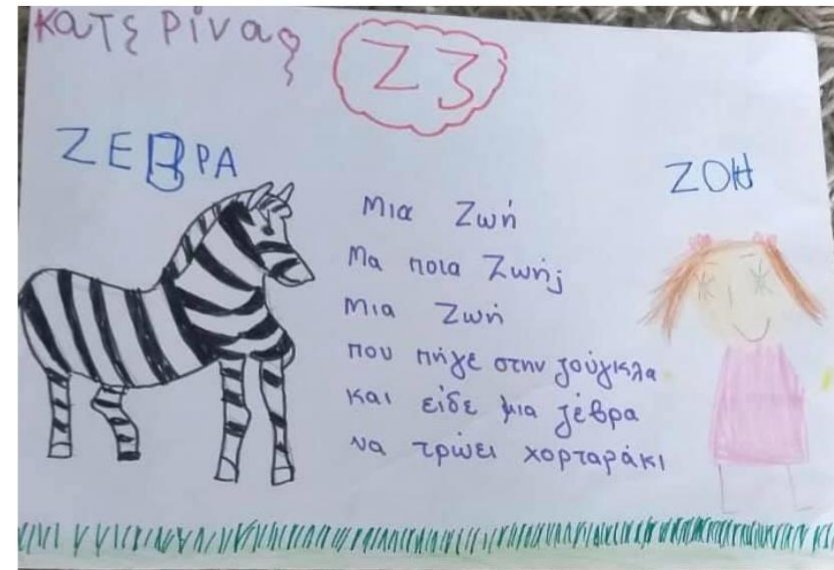 Κατερίνα
Ζ ζ
ΖΕΒΡΑ
ΖΟΗ
Μια Ζωή
Μα ποια Ζωή;
Μια Ζωή
που πήγε στην ζούγκλα
και είδε μια ζέβρα
να τρώει χορταράκι